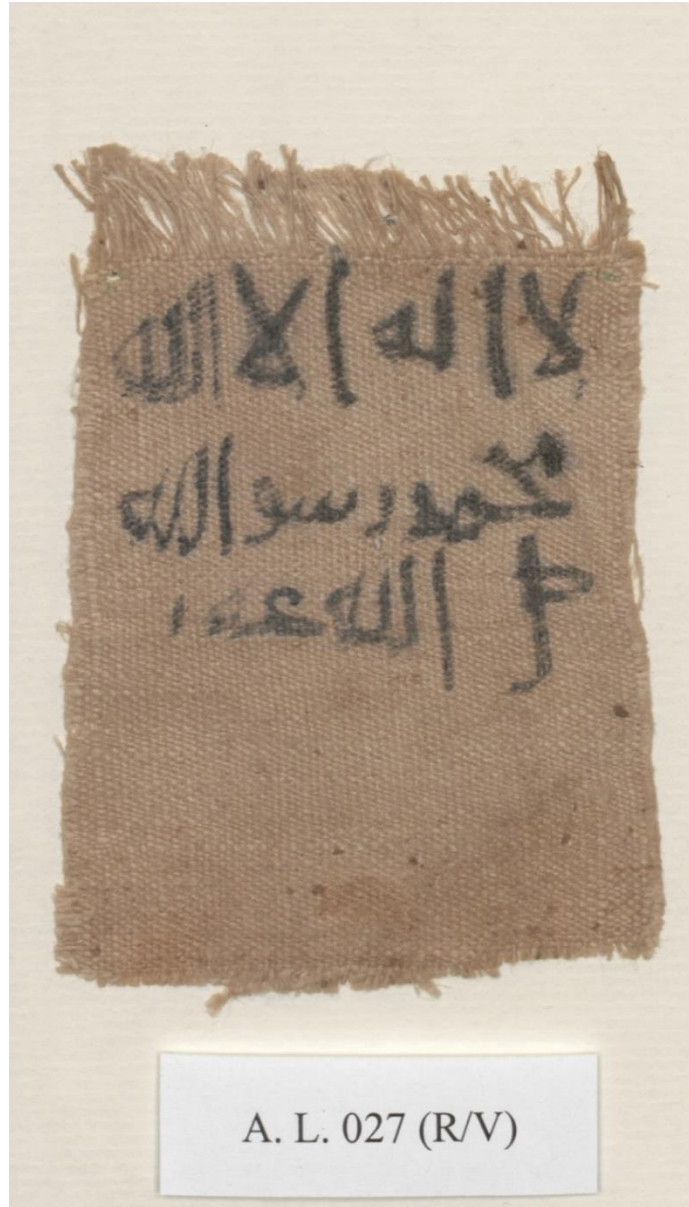 لا اله الا الله
محمد رسو الله
الله
A. L. 027 (R/V)